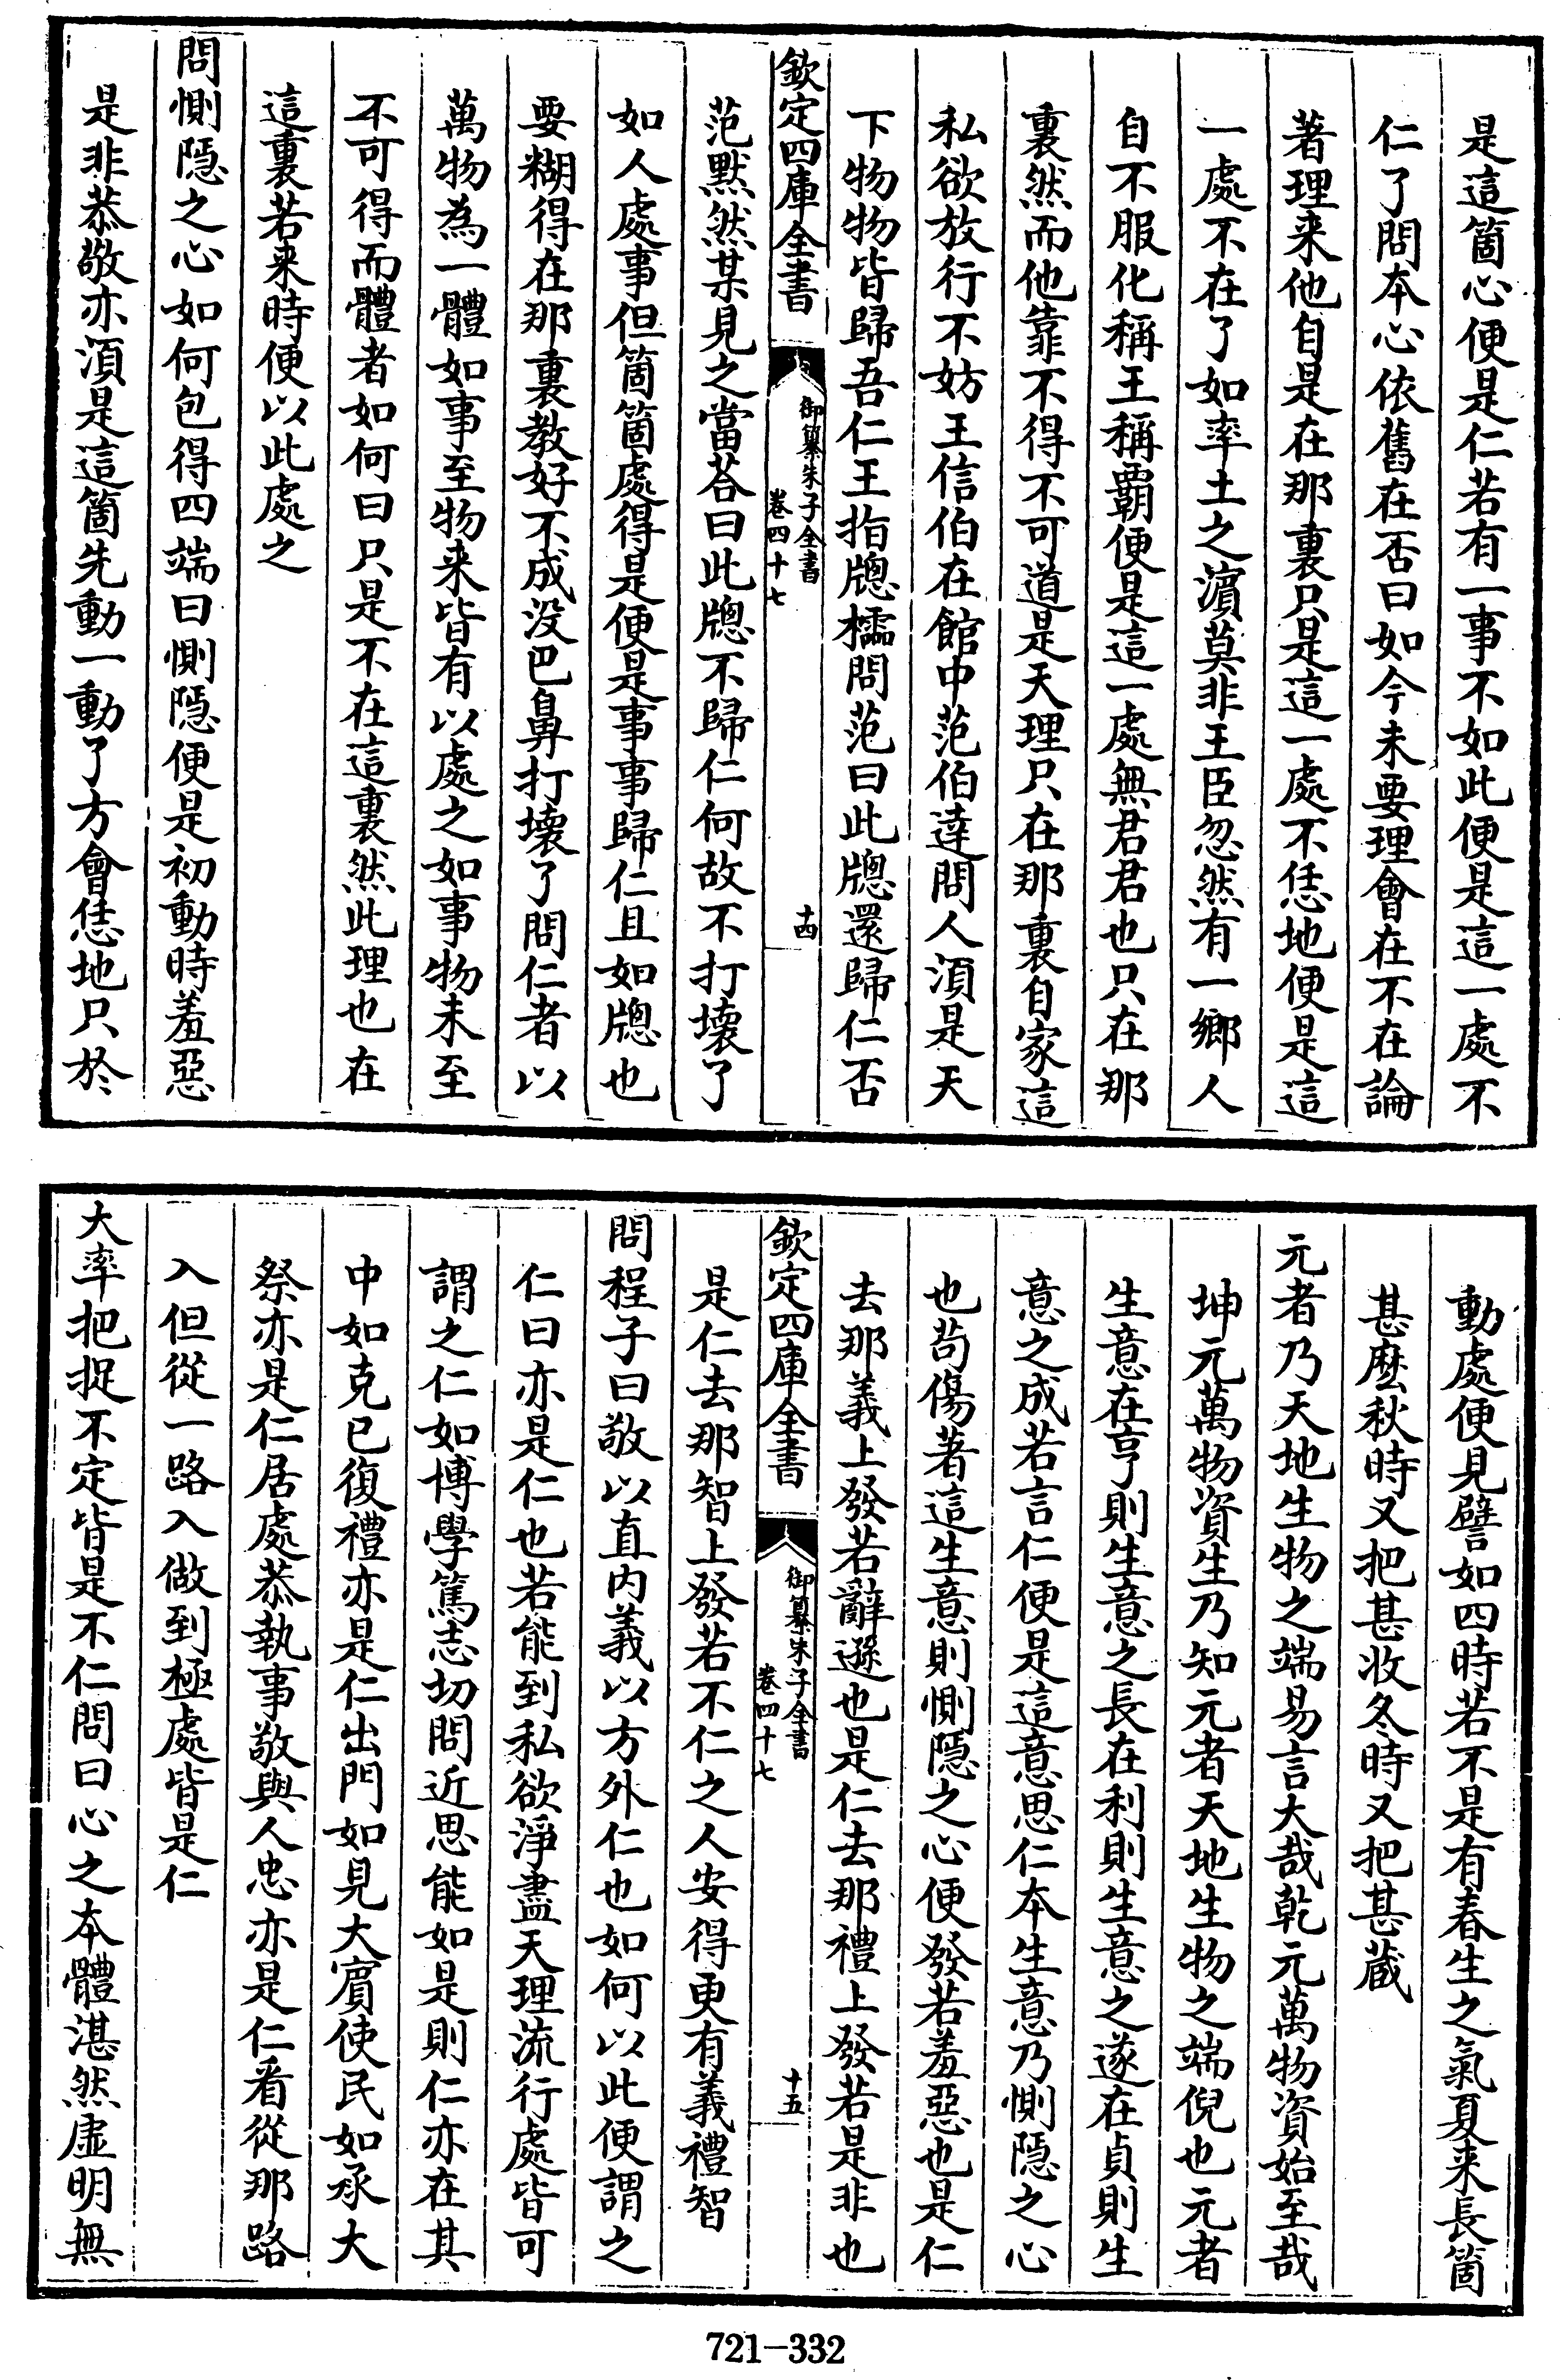 是這箇心便是仁若有一事不如此便是這一處不
仁了問本心依舊在否曰如今未要理會在不在論
著理来他自是在那裏只是這一處不恁地便是這
一處不在了如率土之濱莫非王臣忽然有一鄉人
自不服化稱王稱霸便是這一處無君君也只在那
裏然而他靠不得不可道是天理只在那裏自家這
私欲放行不妨王信伯在館中范伯達問人湏是天
下物物皆歸吾仁王指牎櫺問范曰此牎還歸仁否
欽定四庫全書
御纂朱子全書
卷四十七
十四
范黙然某見之當荅曰此牎不歸仁何故不打壞了
如人處事但箇箇處得是便是事事歸仁且如牎也
要糊得在那裏教好不成没巴鼻打壞了問仁者以
萬物為一體如事至物来皆有以處之如事物未至
不可得而體者如何曰只是不在這裏然此理也在
這裏若来時便以此處之
問惻隠之心如何包得四端曰惻隠便是初動時羞惡
是非恭敬亦湏是這箇先動一動了方會恁地只於
動處便見譬如四時若不是有春生之氣夏来長箇
甚麽秋時又把甚收冬時又把甚蔵
元者乃天地生物之端易言大哉乾元萬物資始至哉
坤元萬物資生乃知元者天地生物之端倪也元者
生意在亨則生意之長在利則生意之遂在貞則生
意之成若言仁便是這意思仁本生意乃惻隠之心
也茍傷著這生意則惻隠之心便發若羞惡也是仁
去那義上發若辭遜也是仁去那禮上發若是非也
欽定四庫全書
御纂朱子全書
卷四十七
十五
是仁去那智上發若不仁之人安得更有義禮智
問程子曰敬以直内義以方外仁也如何以此便謂之
仁曰亦是仁也若能到私欲淨盡天理流行處皆可
謂之仁如博學篤志切問近思能如是則仁亦在其
中如克已復禮亦是仁出門如見大賓使民如承大
祭亦是仁居處恭執事敬與人忠亦是仁看從那路
入但從一路入做到極處皆是仁
大率把捉不定皆是不仁問曰心之本體湛然虚明無
721-332